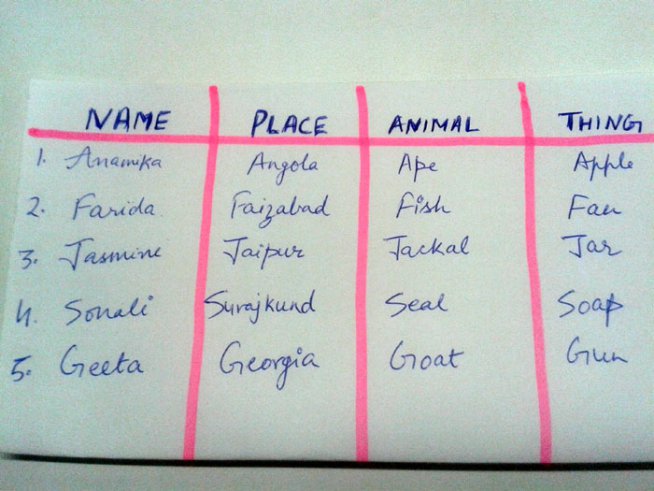 NAME PLACE ANIMAL THING
1. Anamika Angola Ape Apple
2. Farida Faizabad Fish Fan
3. Jasmine Jaipur Jackal Jar
4. Sonali Surajkund Seal Soap
5. Geeta Georgia Goat Gun